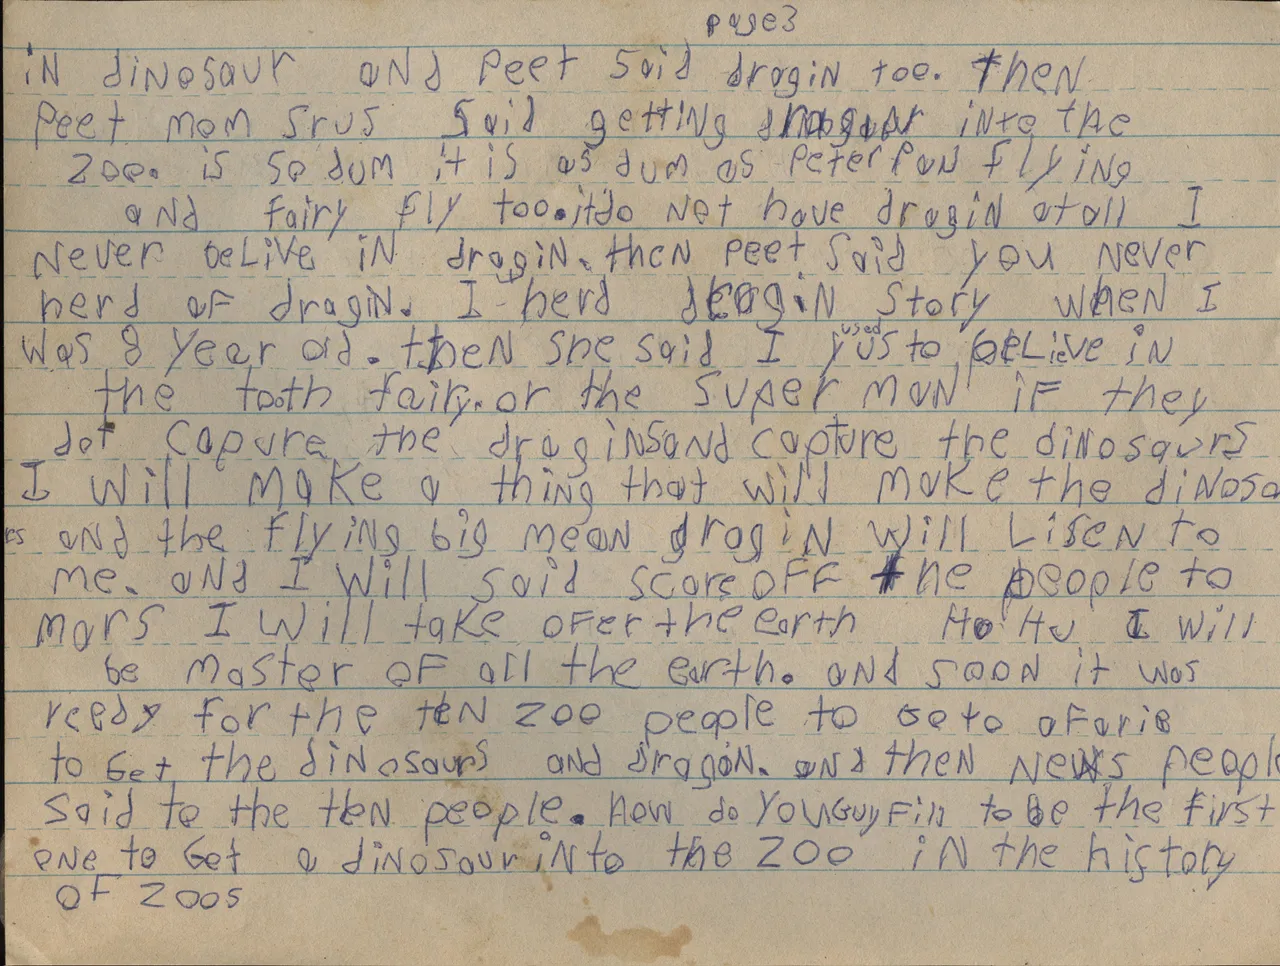 page3
in dinosaur and peet said dragin too. then
peet mom srus said getting into the
zoo. is so dum it is as dum as Peter Pan flying
and fairy fly too. it do not have dragin at all I
never belive in dragin. then peet said you never
herd of dragin. I herd dragin story when I
was 8 year old. then she said I used yus to believe in
the tooth fairy. or the super man if they
dot capure the draginsand capture the dinosaurs
I will make a thing that will make the dinosa
rs and the flying big mean dragin will Lisen to
me. and I will said score off the people to
mars I will take ofer the earth Ho Hu I will
be master of all the earth. and soon it was
ready for the ten zoo people to Go to afarie
to Get the dinosaurs and dragon. and then news peopl
said to the ten people. how do you Guy Fill to be the first
one to Get a dinosaur into the zoo in the history
of zoos